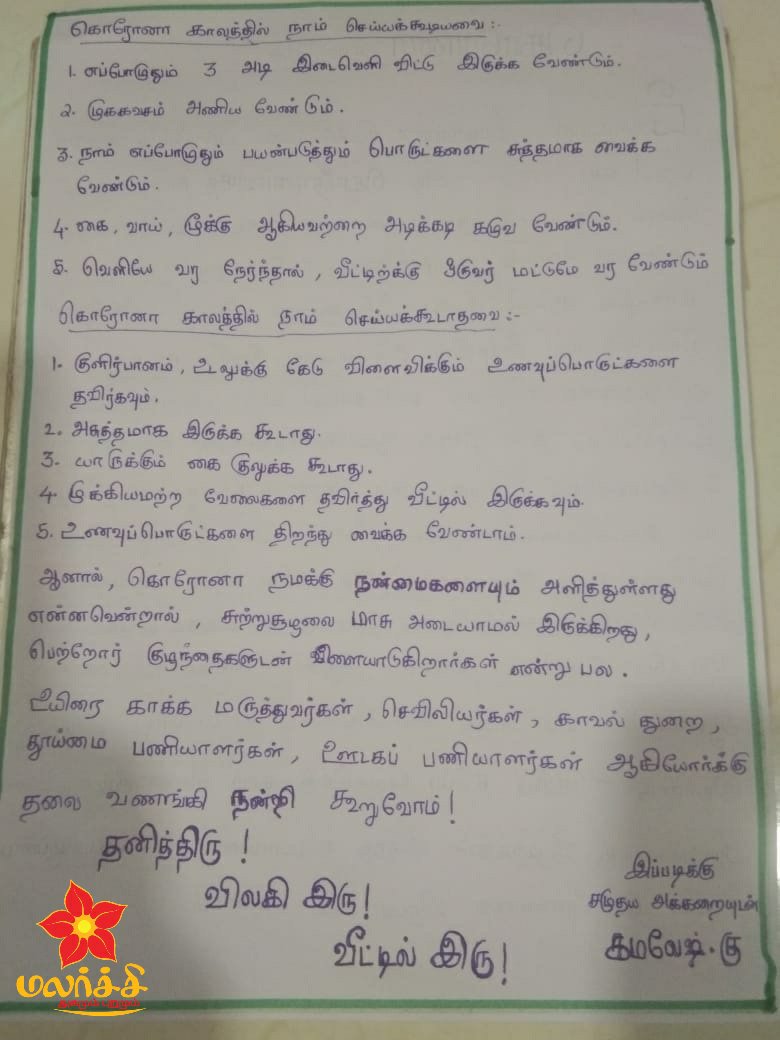 கொரோனா காலத்தில் நாம் செய்யக்கூடியவை :-
1. எப்போழுதும் 3 அடி இடைவெளி விட்டு இருக்க வேண்டும்.
2. முககவசம் அணிய வேண்டும்.
3. நாம் எப்போழுதும் பயன்படுத்தும் பொருட்களை சுத்தமாக வைக்க
வேண்டும்.
4. கை, வாய், மூக்கு ஆகியவற்றை அடிக்கடி கழுவ வேண்டும்.
5. வெளியே வர நேர்ந்தால், வீட்டிற்க்கு ஒருவர் மட்டுமே வர வேண்டும்
கொரோனா காலத்தில் நாம் செய்யக்கூடாதவை :-
1. குளிர்பானம், உலுக்கு கேடு விளைவிக்கும் உணவுப்பொருட்களை
தவிர்கவும்.
2. அசுத்தமாக இருக்க கூடாது.
3. யாருக்கும் கை குலுக்க கூடாது.
4. முக்கியமற்ற வேலைகளை தவிர்த்து வீட்டில் இருக்கவும்.
5. உணவுப்பொருட்களை திறந்து வைக்க வேண்டாம்.
ஆனால், கொரோனா நமக்கு நன்மைகளையும் அளித்துள்ளது
என்னவென்றால், சுற்றுசூழலை மாசு அடையாமல் இருக்கிறது,
பெற்றோர் குழந்தைகளுடன் விளையாடுகிறார்கள் என்று பல.
உயிரை காக்க மருத்துவர்கள், செவிலியர்கள், காவல் துறை,
தூய்மை பணியாளர்கள், ஊடகப் பணியாளர்கள் ஆகியோர்க்கு
தலை வணங்கி நன்றி கூறுவோம்!
தனித்திரு!
விலகி இரு!
வீட்டில் இரு!
இப்படிக்கு
சமுதய அக்கறையுடன்
கமலேஷ்.கு
மலர்ச்சி